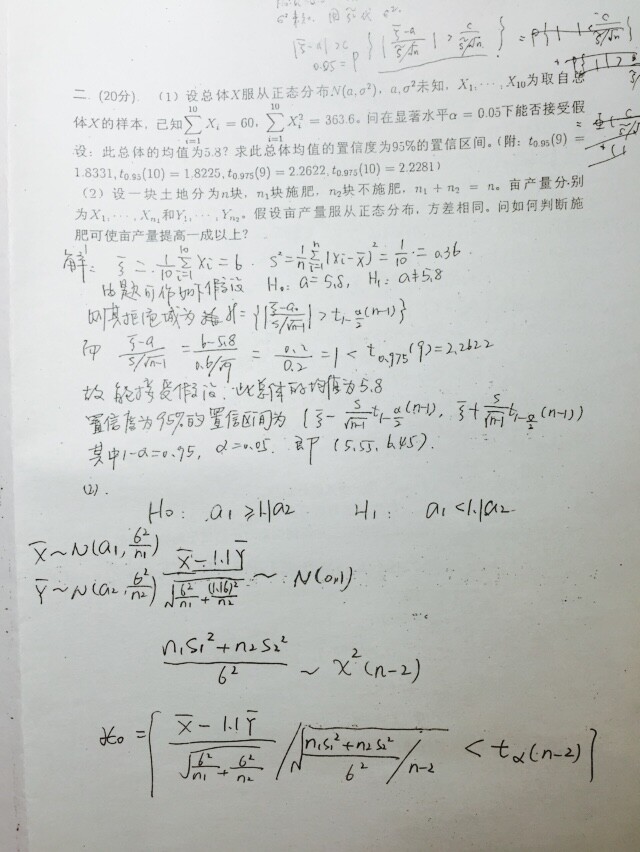 二. (20分). (1) 设总体X服从正态分布N(a,σ²), a,σ²未知, X₁,···,X₁₀为取自总
体X的样本, 已知∑_{i=1}^{10} X_i = 60, ∑_{i=1}^{10} X_i² = 363.6。问在显著水平α = 0.05下能否接受假
设: 此总体的均值为5.8? 求此总体均值的置信度为95%的置信区间。(附: t₀.₉₅(9) =
1.8331, t₀.₉₅(10) = 1.8225, t₀.₉₇₅(9) = 2.2622, t₀.₉₇₅(10) = 2.2281)
(2) 设一块土地分为n块, n₁块施肥, n₂块不施肥, n₁ + n₂ = n。亩产量分别
为X₁,···,X_{n₁}和Y₁,···,Y_{n₂}。假设亩产量服从正态分布, 方差相同。问如何判断施
肥可使亩产量提高一成以上?
解: ξ̄ = 1/10 ∑_{i=1}^{10} Xi = 6. S² = 1/n ∑_{i=1}^{n} (Xi - x̄)² = 1/10 · = 0.36
由题可作如下假设 H₀: a = 5.8, H₁: a ≠ 5.8
则其拒绝域为 = {|(ξ̄ - a₀)/(S/√(n-1))| > t_{1-α/2}(n-1)}
而 (ξ̄ - a)/(S/√(n-1)) = (6 - 5.8)/(0.6/√9) = 0.2/0.2 = 1 < t₀.₉₇₅(9) = 2.2622
故 能接受假设. 此总体的均值为5.8
置信度为95%的置信区间为 (ξ̄ - S/√(n-1) t_{1-α/2}(n-1), ξ̄ + S/√(n-1) t_{1-α/2}(n-1))
其中1-α = 0.95, α = 0.05. 即 (5.55, 6.45).
(2).
H₀: a₁ ≥ 1.1a₂ H₁: a₁ < 1.1a₂
X̄ ~ N(a₁, σ²/n₁)
Ȳ ~ N(a₂, σ²/n₂) (X̄ - 1.1Ȳ)/√(σ²/n₁ + (1.1σ)²/n₂) ~ N(0,1)
(n₁S₁² + n₂S₂²)/σ² ~ χ²(n-2)
𝒳₀ = {(X̄ - 1.1Ȳ)/√(σ²/n₁ + σ²/n₂) / √((n₁S₁² + n₂S₂²)/σ² / n-2) < t_α(n-2)}